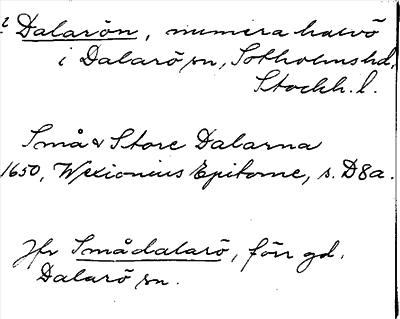 ? Dalarön, numera halvö
i Dalarö sn, Sotholms hd,
Stockh. l.
Små & Store Dalarna
1650, Wexionius Epitome, s. D8a.
Jfr Smådalarö, förr gd.
Dalarö sn.